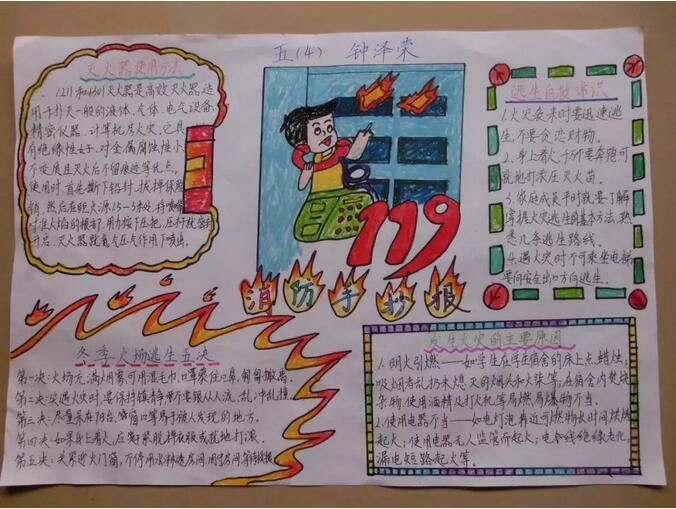 五(4) 钟泽荣
灭火器使用方法
1211和1301灭火器是高效灭火器,适
用于扑灭一般的液体、气体、电气设备、
精密仪器、计算机房火灾。它具
有绝缘性好,对金属腐蚀性小,
不变质且灭火后不留痕迹等优点。
使用时,首先撕下铅封,拔掉保险
销,然后在距火源1.5—3米处,将喷嘴
对准火焰的根部,用力按下压把,压杆就密封
开启,灭火器就氮气压气作用下喷出。
119
消防手抄报
逃生自救常识
1.火灾袭来时要迅速逃
生,不要贪恋财物。
2.身上着火,千万不要奔跑,可
就地打滚压灭火苗。
3.家庭成员平时就要了解
掌握火灾逃生的基本方法,熟
悉几条逃生路线。
4.遇火灾时不可乘坐电梯
要向安全出口方向逃生。
冬季火场逃生五决
第一决:火场充满烟雾可用湿毛巾,口罩蒙住口鼻,匍匐撤离。
第二决:突遇火灾时,要保持镇静,不要跟从人流,乱冲乱撞。
第三决:尽量呆在阳台、窗口等易于被人发现的地方。
第四决:如果身上着火,应赶紧脱掉衣服或就地打滚。
第五决:关紧迎火门窗,不停用水淋透房间,用
发生火灾的主要原因
1.明火引燃——如学生在学生宿舍的床上点蜡烛;
吸烟者乱扔未熄灭的烟头和火柴等,在宿舍内焚烧
杂物,使用酒精及打火机等易燃易爆物不当。
2.使用电器不当——如电灯泡靠近可燃物长时间烘烤
起火;使用电器无人监管而起火;电线绝缘老化,
漏电短路起火等。